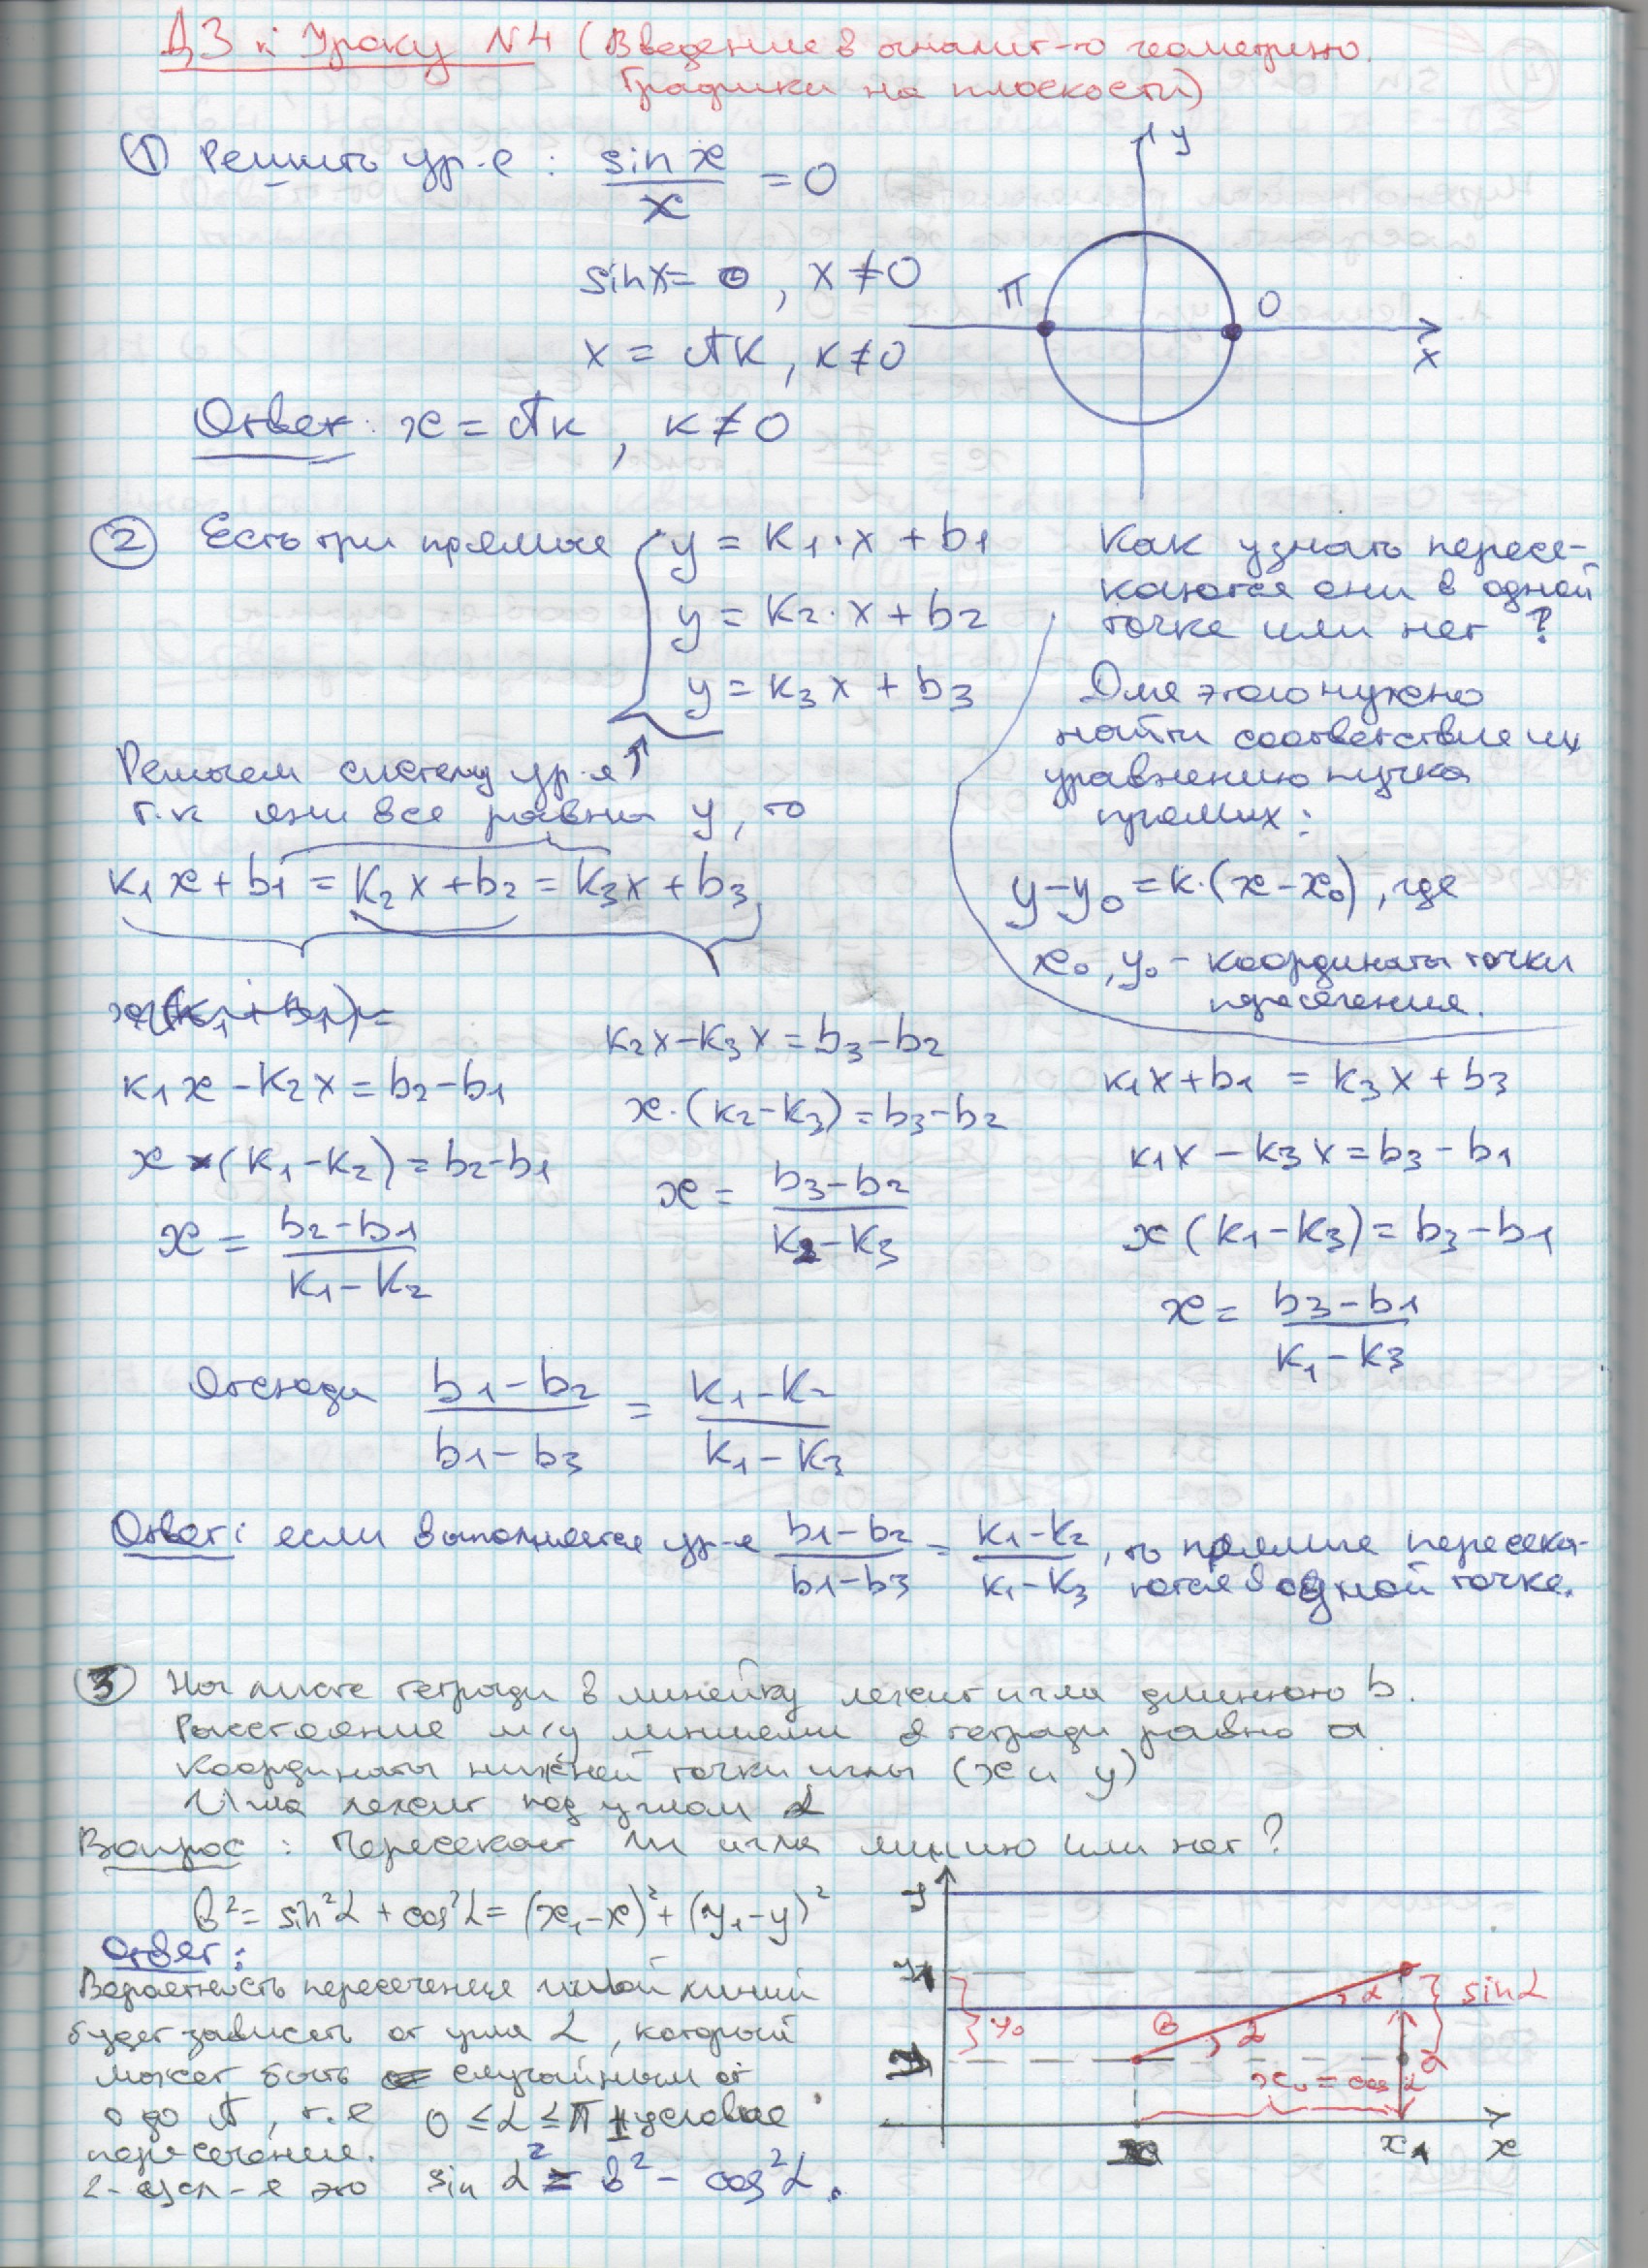 ДЗ к Уроку №4 (Введение в аналит-ю геометрию.
Графики на плоскости)
① Решить ур-е: sin x / x = 0
sin x = 0, x ≠ 0
x = πk, k ≠ 0
Ответ: x = πk, k ≠ 0
y
π
0
x
② Есть три прямые
y = k1·x + b1
y = k2·x + b2
y = k3x + b3
Как узнать пересе-
каются они в одной
точке или нет?
Для этого нужно
найти соответствие их
уравнению пучка
прямых:
y - y0 = k·(x - x0), где
x0, y0 - координаты точки
пересечения.
Решаем систему ур-я
т.к они все равны y, то
k1x + b1 = k2x + b2 = k3x + b3
k1x - k2x = b2 - b1
x·(k1 - k2) = b2 - b1
x = (b2 - b1) / (k1 - k2)
k2x - k3x = b3 - b2
x·(k2 - k3) = b3 - b2
x = (b3 - b2) / (k2 - k3)
k1x + b1 = k3x + b3
k1x - k3x = b3 - b1
x(k1 - k3) = b3 - b1
x = (b3 - b1) / (k1 - k3)
Отсюда (b1 - b2) / (b1 - b3) = (k1 - k2) / (k1 - k3)
Ответ: если выполняется ур-е (b1 - b2) / (b1 - b3) = (k1 - k2) / (k1 - k3), то прямые пересека-
ются в одной точке.
③ На листе тетради в линейку лежит игла длинною b.
Расстояние м/у линиями в тетради равно a
Координаты нижней точки иглы (x и y)
Игла лежит под углом α
Вопрос: Пересекает ли игла линию или нет?
b² = sin²α + cos²α = (x1 - x)² + (y1 - y)²
Ответ:
Вероятность пересечения иглой линий
будет зависеть от угла α, который
может быть случайным от
0 до π, т.е 0 ≤ α ≤ π 1 условие
пересечения.
2-усл-е это sin α² = b² - cos²α.
y
y1
y0
b
α
α
sin α
a
x0 = cos α
x1
x